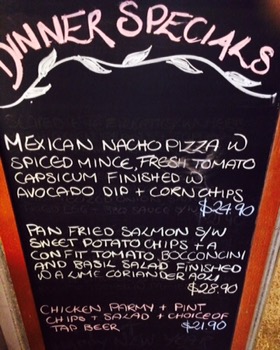 DINNER SPECIALS
MEXICAN NACHO PIZZA W/
SPICED MINCE, FRESH TOMATO
CAPSICUM FINISHED W
AVOCADO DIP + CORN CHIPS
$24.90
PAN FRIED SALMON S/W
SWEET POTATO CHIPS + A
CONFIT TOMATO, BOCCONCINI
AND BASIL SALAD FINISHED
W A LIME CORIANDER AOLI
$28.90
CHICKEN PARMY + PINT
CHIPS + SALAD + CHOICE OF
TAP BEER $21.90